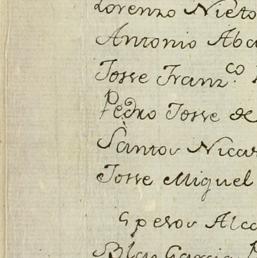 Lorenzo Nieto
Antonio Aba
Josse Franz.co
Pedro Josse de
Santos Nicar
Josse Miguel
Alco
Blas Garcia